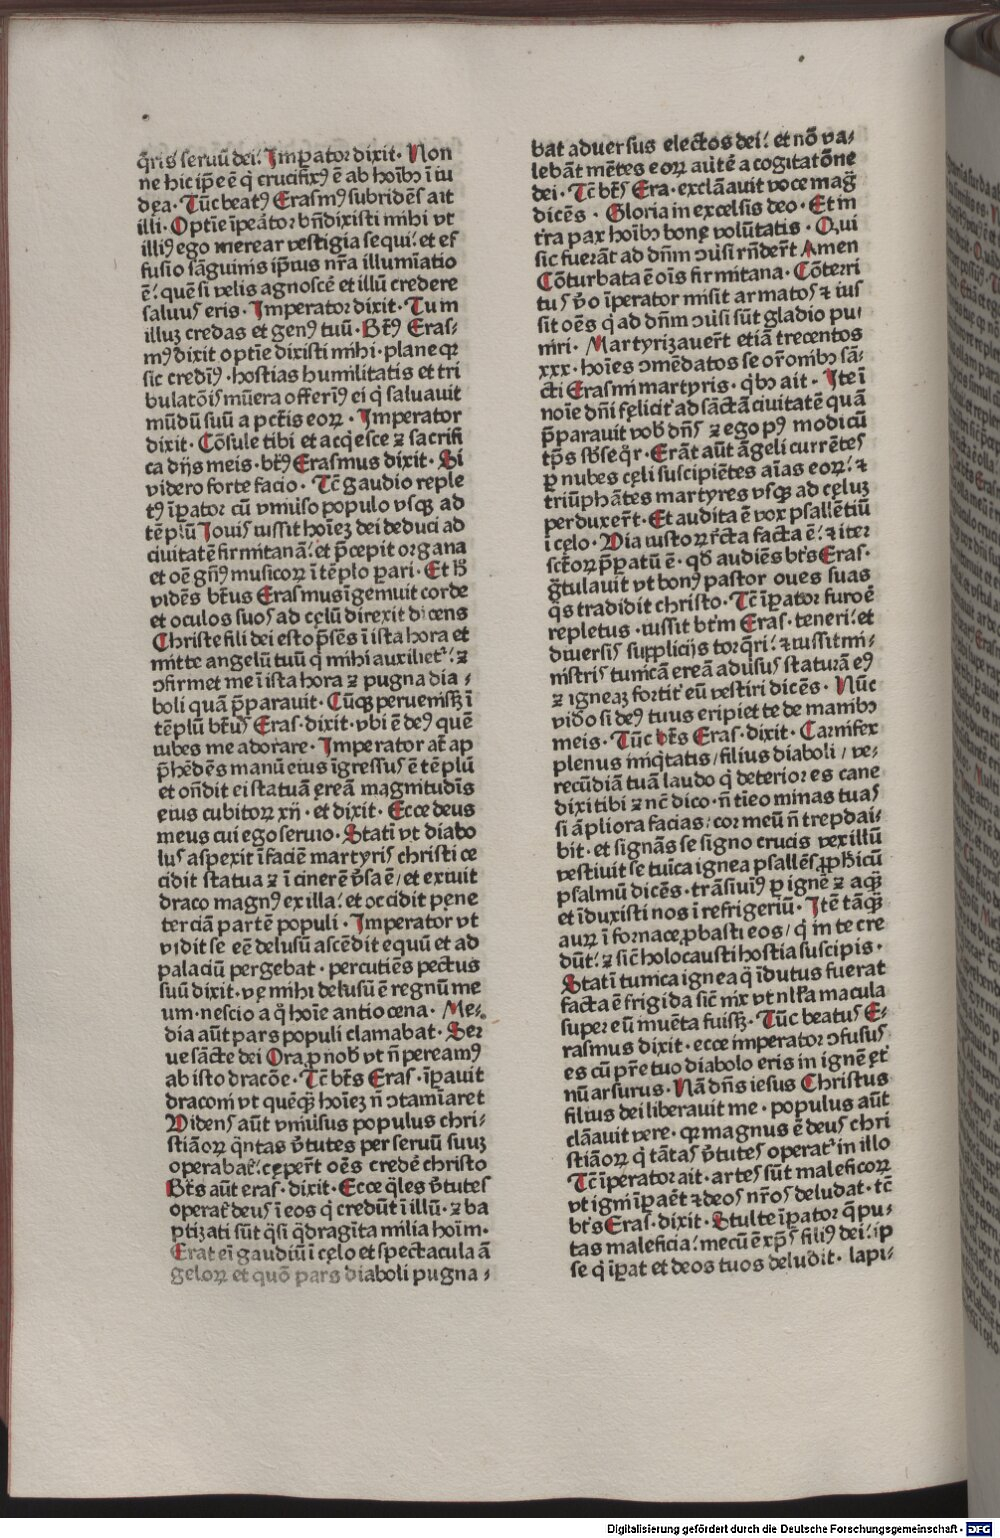 q̄ris seruū dei? Imperator dixit · Non
ne hic ip̄e ē q̇ crucifixꝰ ē ab hoībꝫ ī iu
dęa · Tūc beatꝰ Erasmꝰ subridēs ait
illi · Optīe īperator bn̄dixisti mihi vt
illiꝰ ego merear vestigia sequi? et ef
fusio sāguinis ip̄ius nr̄a illumīatio
ē? quē si velis agnoscē et illū credere
saluus eris · Imperator dixit · Tu in
illuz credas et genꝰ tuū · Bt̄ꝰ Eras⸗
mꝰ dixit optīe dixisti mihi · plane qꝛ
sic crediꝰ · hostias humilitatis et tri
bulatōis mūera offeriꝰ ei q̇ saluauit
mūdū suū a pctīs eoꝝ · Imperator
dixit · Cōsule tibi et acq̇esce ⁊ sacrifi
ca dijs meis · bt̄ꝰ Erasmus dixit · Si
videro forte facio · Tē gaudio reple
tꝰ īpator cū vniuso populo vsqꝫ ad
tēplū Iouis iussit hoīez dei deduci ad
ciuitatē firmitanā? et p̄cepit organa
et oē gn̄ꝰ musicoꝝ ī tēplo parari · Et
vidēs bt̄us Erasmus īgemuit corde
et oculos suos ad cęlū direxit dicens
Christe fili dei esto p̄sēs ī ista hora et
mitte angelū tuū q̇ mihi auxilietᷣ? ⁊
ↄfirmet me ī ista hora ⁊ pugna dia⸗
boli quā p̄parauit · Cūqꝫ peruenissꝫ ī
tēplū bt̄us Eras · dixit · vbi ē deꝰ quē
iubes me adorare · Imperator at̄ ap
p̄hēdēs manū eius īgressus ē tēplū
et ondit ei statuā ęreā magnitudīs
eius cubitoꝝ xij · et dixit · Ecce deus
meus cui ego seruio · Statī vt diabo
lus aspexit ī faciē martyris christi ce
cidit statua ⁊ ī cinerē v̄sa ē / et exiuit
draco magnꝰ ex illa? et occidit pęne
terciā partē populi · Imperator vt
vidit se eē delusū ascēdit equū et ad
palaciū pergebat · percutiēs pectus
suū dixit · vę mihi delusū ē regnū me
um · nescio a q̇ hoīe antiocena · Me⸗
dia aūt pars populi clamabat · Ser
ue sācte dei Ora ꝓ nob̄ vt n̄ pereamꝰ
ab isto dracōe · Tē bt̄s Eras · īpauit
draconi vt quēqꝫ hoīez n̄ ↄtamīaret
Videns aūt vniusus populus chri⸗
stiāoꝝ q̄ntas v̄tutes per seruū suuz
operabat̄? cępert̄ oēs credē christo
Bt̄s aūt eras · dixit · Ecce q̄les v̄tutes
operat̄ deus ī eos q̇ credūt ī illū · ⁊ ba
ptizati sūt q̄si q̄dragīta milia hoīm ·
Erat eī gaudiū ī cęlo et spectacula ā
geloꝝ et quō pars diaboli pugna⸗
bat aduersus electos dei? et nō va⸗
lebāt mētes eoꝝ auītē a cogitatōne
dei · Tē bt̄s Era · exclāauit voce maḡ
dicēs · Gloria in excelsis deo · Et in
tr̄ra pax hoībꝫ bonę volūtatis · Qui
sic fuerāt ad dn̄m ↄūsi rn̄dert̄ Amen
Cōturbata ē oīs firmitana · Cōterri
tus v̄o īperator misit armatos ⁊ ius
sit oēs q̇ ad dn̄m ↄūsi sūt gladio pu
niri · Martyrizauert̄ etiā trecentos
xxx · hoīes ↄmēdatos se orōnibꝫ sā⸗
cti Erasmi martyris · q̇bꝫ ait · Ite ī
noīe dn̄i felicit̄ ad sāctā ciuitatē quā
p̄parauit vob̄ dn̄s ⁊ ego pꝰ modicū
tp̄s sb̄seq̄r · Erāt aūt āgeli currētes
ꝑ nubes cęli suscipiētes aīas eoꝝ? ⁊
triūphātes martyres vsqꝫ ad cęluz
perduxer̄t · Et audita ē vox psallētiū
ī cęlo · Via iustoꝝ rc̄ta facta ē? ⁊ iter
sctōꝝ p̄patū ē · qd̄ audiēs bt̄s Eras ·
ḡtulauit vt bonꝰ pastor oues suas
q̄s tradidit christo · Tē īpator furoē
repletus · iussit bt̄m Eras · teneri? et
diuersis supplicijs torq̄ri? ⁊ iussit mi⸗
nistris tunicā ereā adusus staturā eꝰ
⁊ igneaz fortit̄ eū vestiri dicēs · Nūc
videō si deꝰ tuus eripiet te de manibꝫ
meis · Tūc bt̄s Eras · dixit · Carnifex
plenus iniq̇tatis / filius diaboli / ve⸗
recūdiā tuā laudo q̇ deteriores cane
dixi tibi ⁊ nē dico · n̄ tīeo minas tuas
si āpliora facias? cor meū n̄ trepdai⸗
bit · et signās se signo crucis vexillū
vestiuit se tuīca ignea psallēs ꝓph̄icū
psalmū dicēs · trāsiuiꝰ ꝑ ignē ⁊ aquā
et īduxisti nos ī refrigeriū · Itē tāqꝫ
auꝝ ī fornace ꝓbasti eos / q̇ in te cre
dūt? ⁊ sic̄ holocausti hostia suscipis ·
Statī tunica ignea q̇ īdutus fuerat
facta ē frigida sic̄ nix vt nlla macula
super eū inuēta fuissꝫ · Tūc beatus E⸗
rasmus dixit · ecce imperator ↄfusus
es cū pr̄e tuo diabolo eris in ignē et
nū arsurus · Nā dn̄s iesus Christus
filius dei liberauit me · populus aūt
clāauit vere · qꝛ magnus ē deus chri
stiāoꝝ q̇ tātas v̄tutes operatᷣ in illo
Tē īperator ait · artes sūt maleficoꝝ
vt igni īpaēt ⁊ deos nr̄os deludat · tē
bt̄s Eras · dixit · Stulte īpator q̄ pu⸗
tas maleficia? mecū ē xp̄s filiꝰ dei? ip
se q̇ īpat et deos tuos deludit · lapi⸗
Digitalisierung gefördert durch die Deutsche Forschungsgemeinschaft · DFG